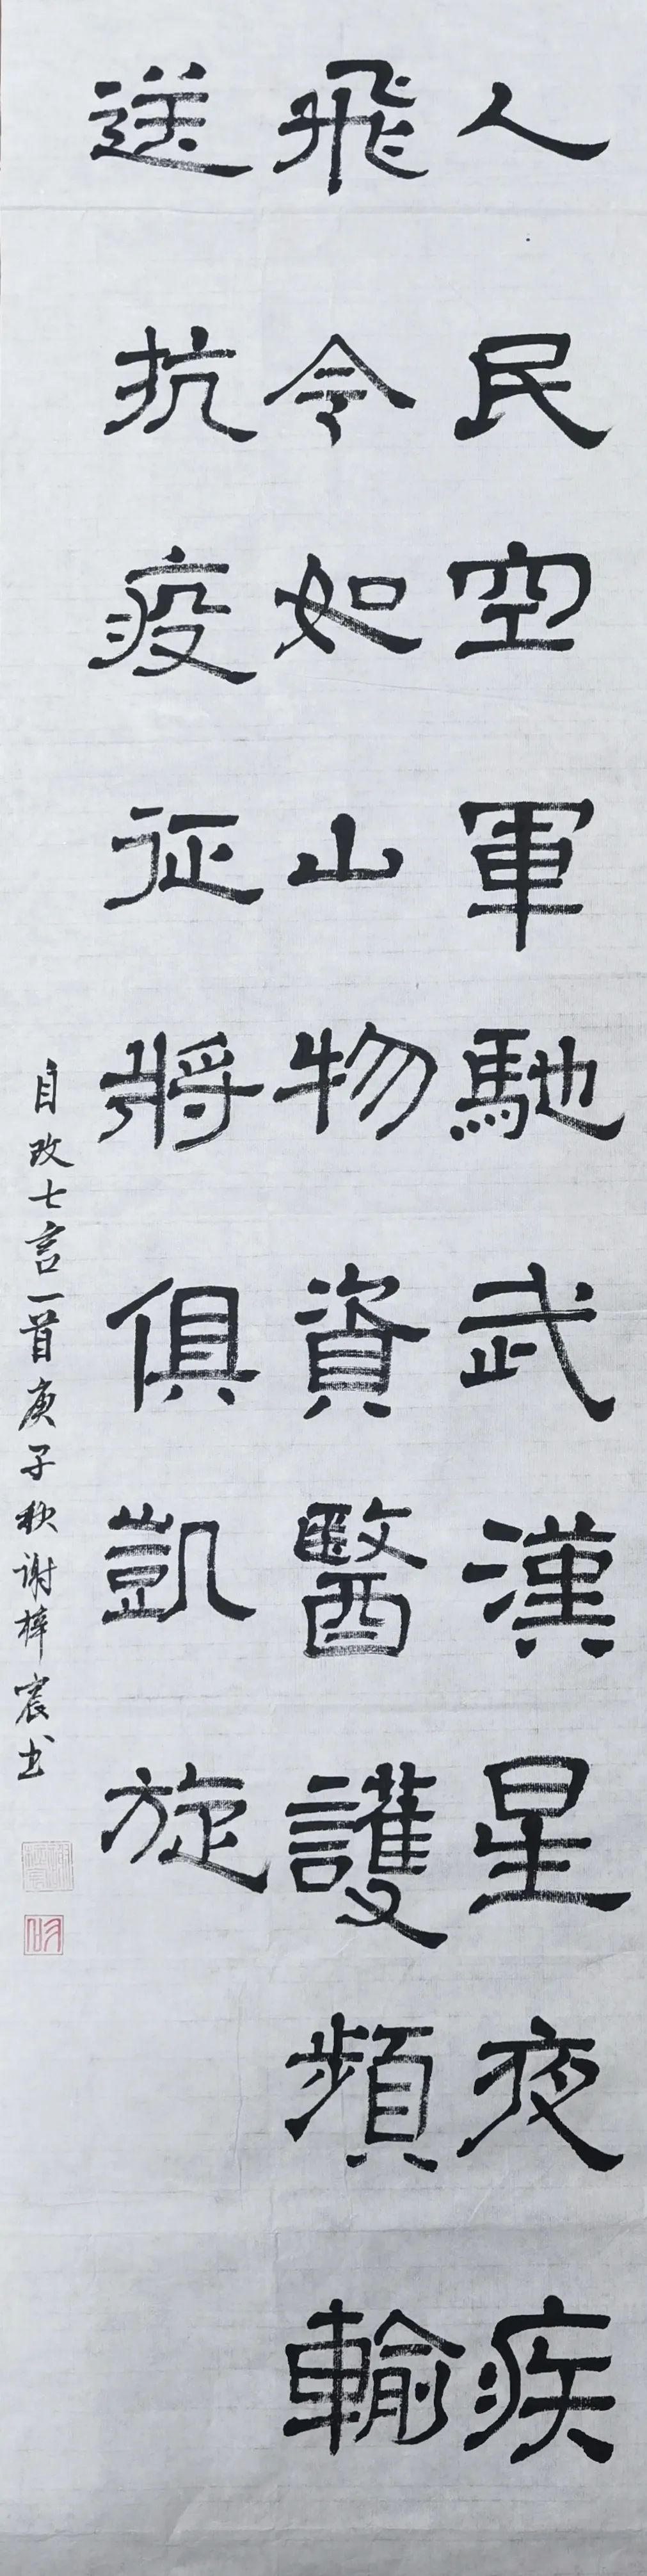 人民空軍馳武漢星夜疾
飛令如山物資醫護頻輸
送抗疫征將俱凱旋
自改七言一首庚子秋谢梓宸书